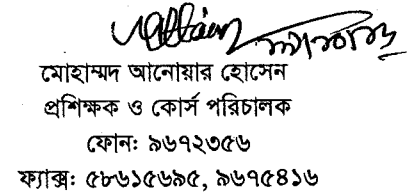 মোহাম্মদ আনোয়ার হোসেন
প্রশিক্ষক ও কোর্স পরিচালক
ফোন: ৯৬৭২৩৫৬
ফ্যাক্স: ৫৮৬১৫৬৯৫, ৯৬৭৫৪১৬